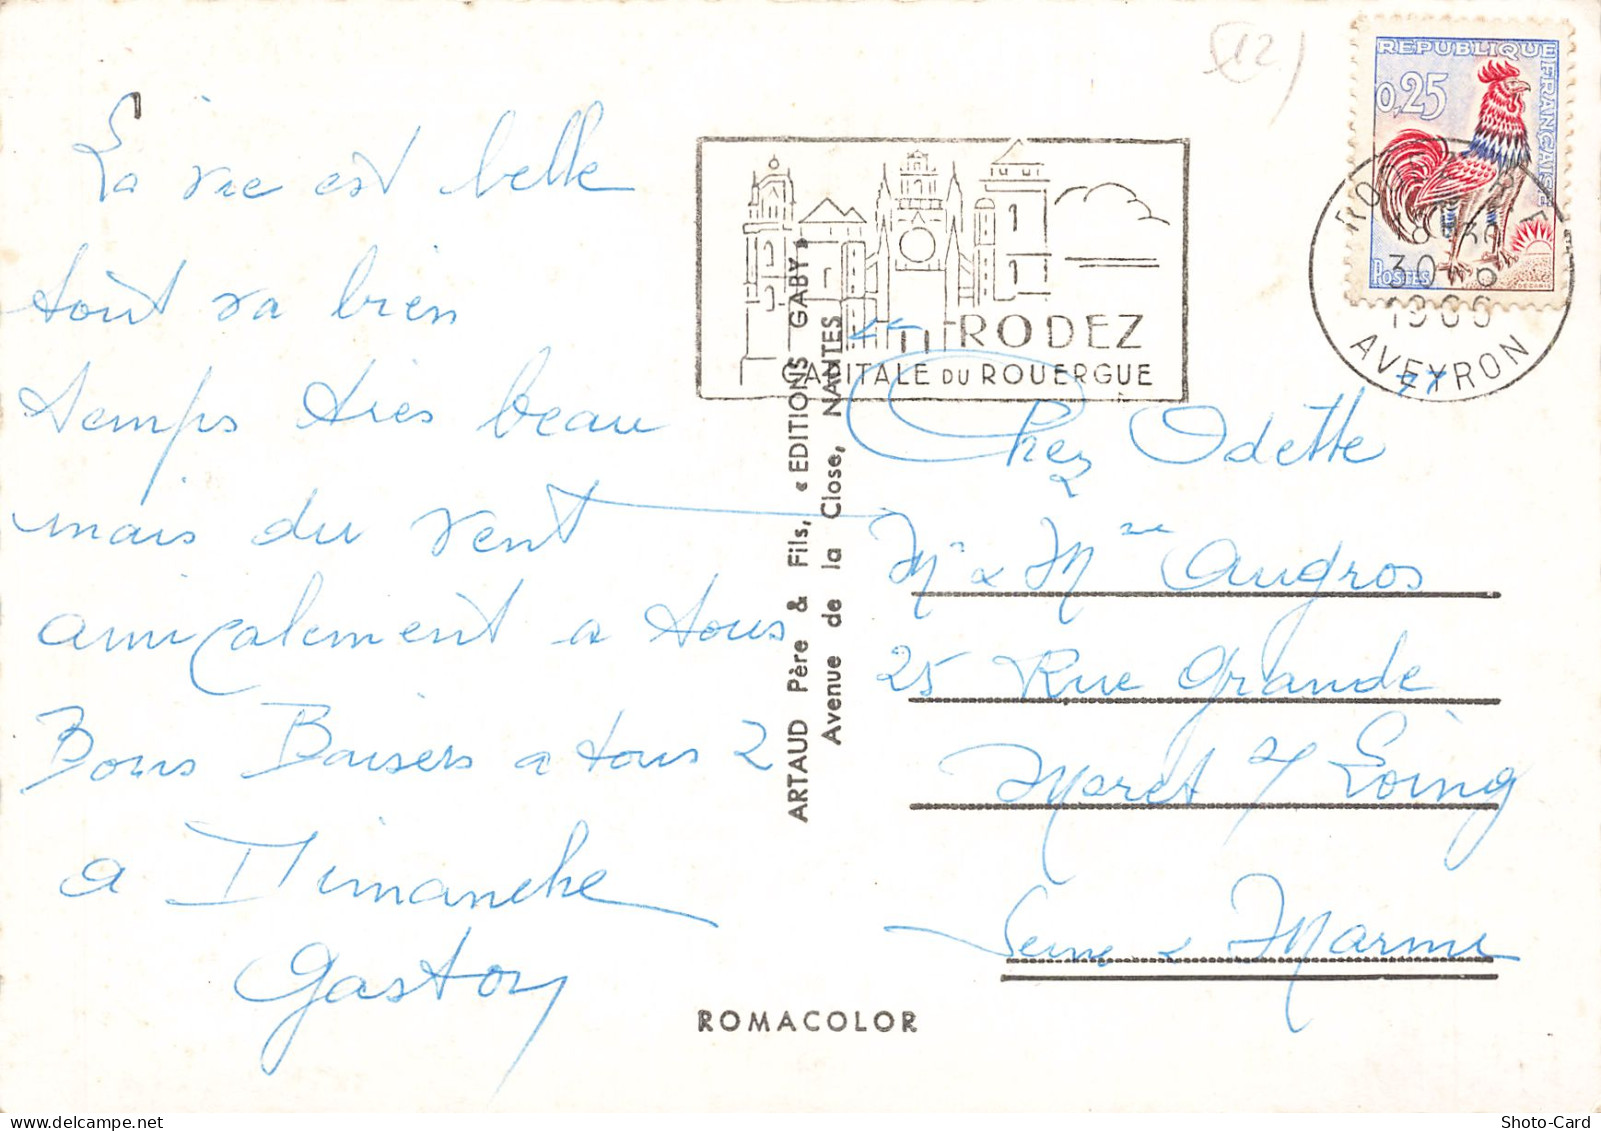 La vie est belle
tout va bien
temps très beau
mais du vent
amicalement a tous
Bons Baisers a tous 2
a Dimanche
Gaston
ARTAUD Père & Fils, « EDITIONS GABY »
Avenue de la Close, NANTES
ROMACOLOR
(12)
REPUBLIQUE FRANÇAISE
0,25
POSTES
RODEZ
CAPITALE DU ROUERGUE
18H30
30-6
1966
AVEYRON
77
Chez Odette
Mr & Mme Augros
25 Rue Grande
Moret s/ Loing
Seine & Marne
Shoto-Card